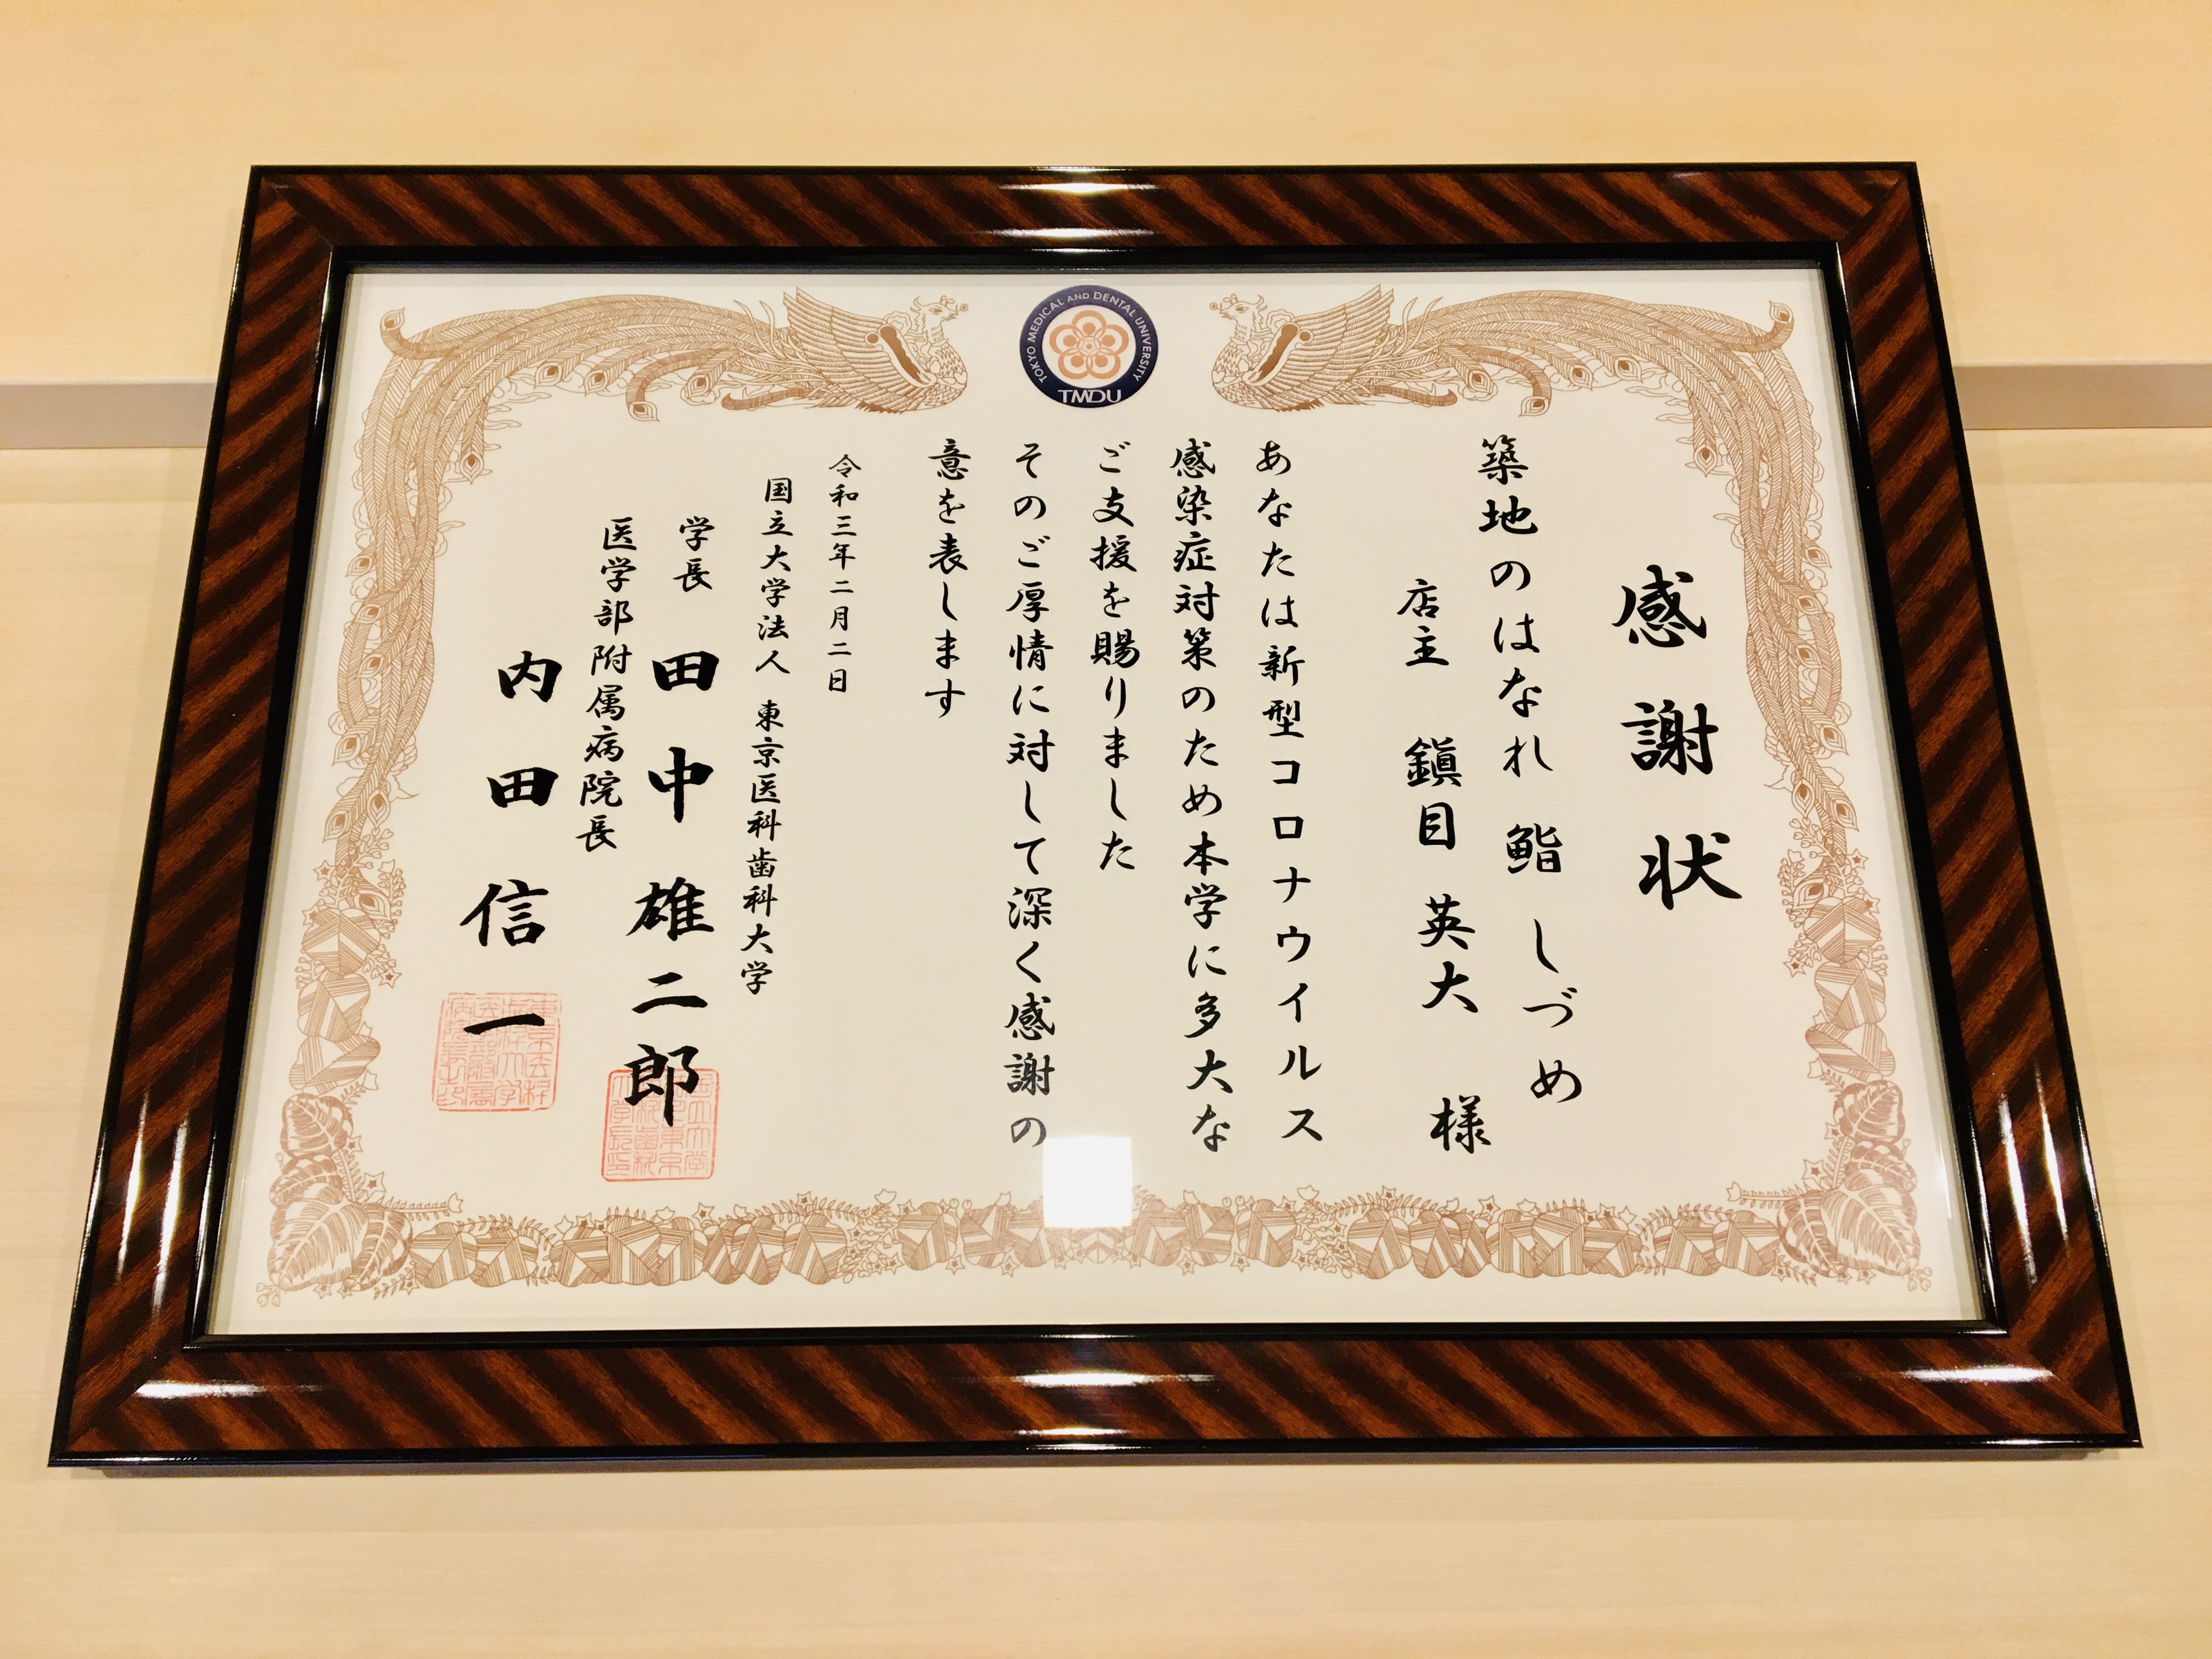 感謝状
築地のはなれ 鮨 しづめ
店主 鎭目 英大 様
あなたは新型コロナウイルス
感染症対策のため本学に多大な
ご支援を賜りました
そのご厚情に対して深く感謝の
意を表します
令和三年二月二日
国立大学法人 東京医科歯科大学
学長 田中雄二郎
医学部附属病院長
内田信一
TOKYO MEDICAL AND DENTAL UNIVERSITY
TMDU